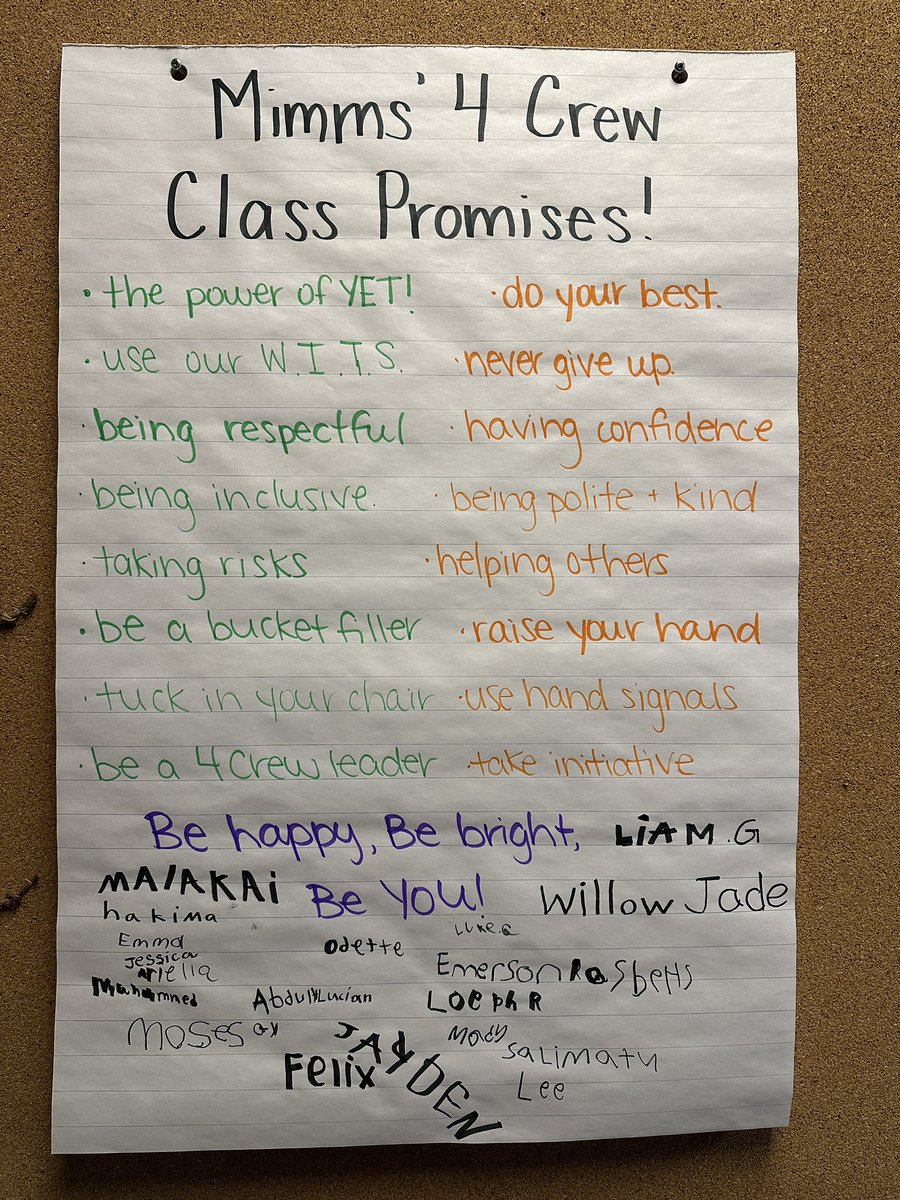 Mimms' 4 Crew
Class Promises!
· the power of YET!
· use our W.I.T.S.
· being respectful
· being inclusive.
· taking risks
· be a bucket filler
· tuck in your chair
· be a 4 Crew leader
· do your best.
· never give up.
· having confidence
· being polite + kind
· helping others
· raise your hand
· use hand signals
· take initiative
Be happy, Be bright,
Be YOU!
LiAM.G
MAlAKAi
Willow Jade
hakima
Emma
Odette
Jessica
Ariella
Emerson
Abdul
Lucian
Moses
JAyDEN
Mady
Salimatu
Felix
Lee